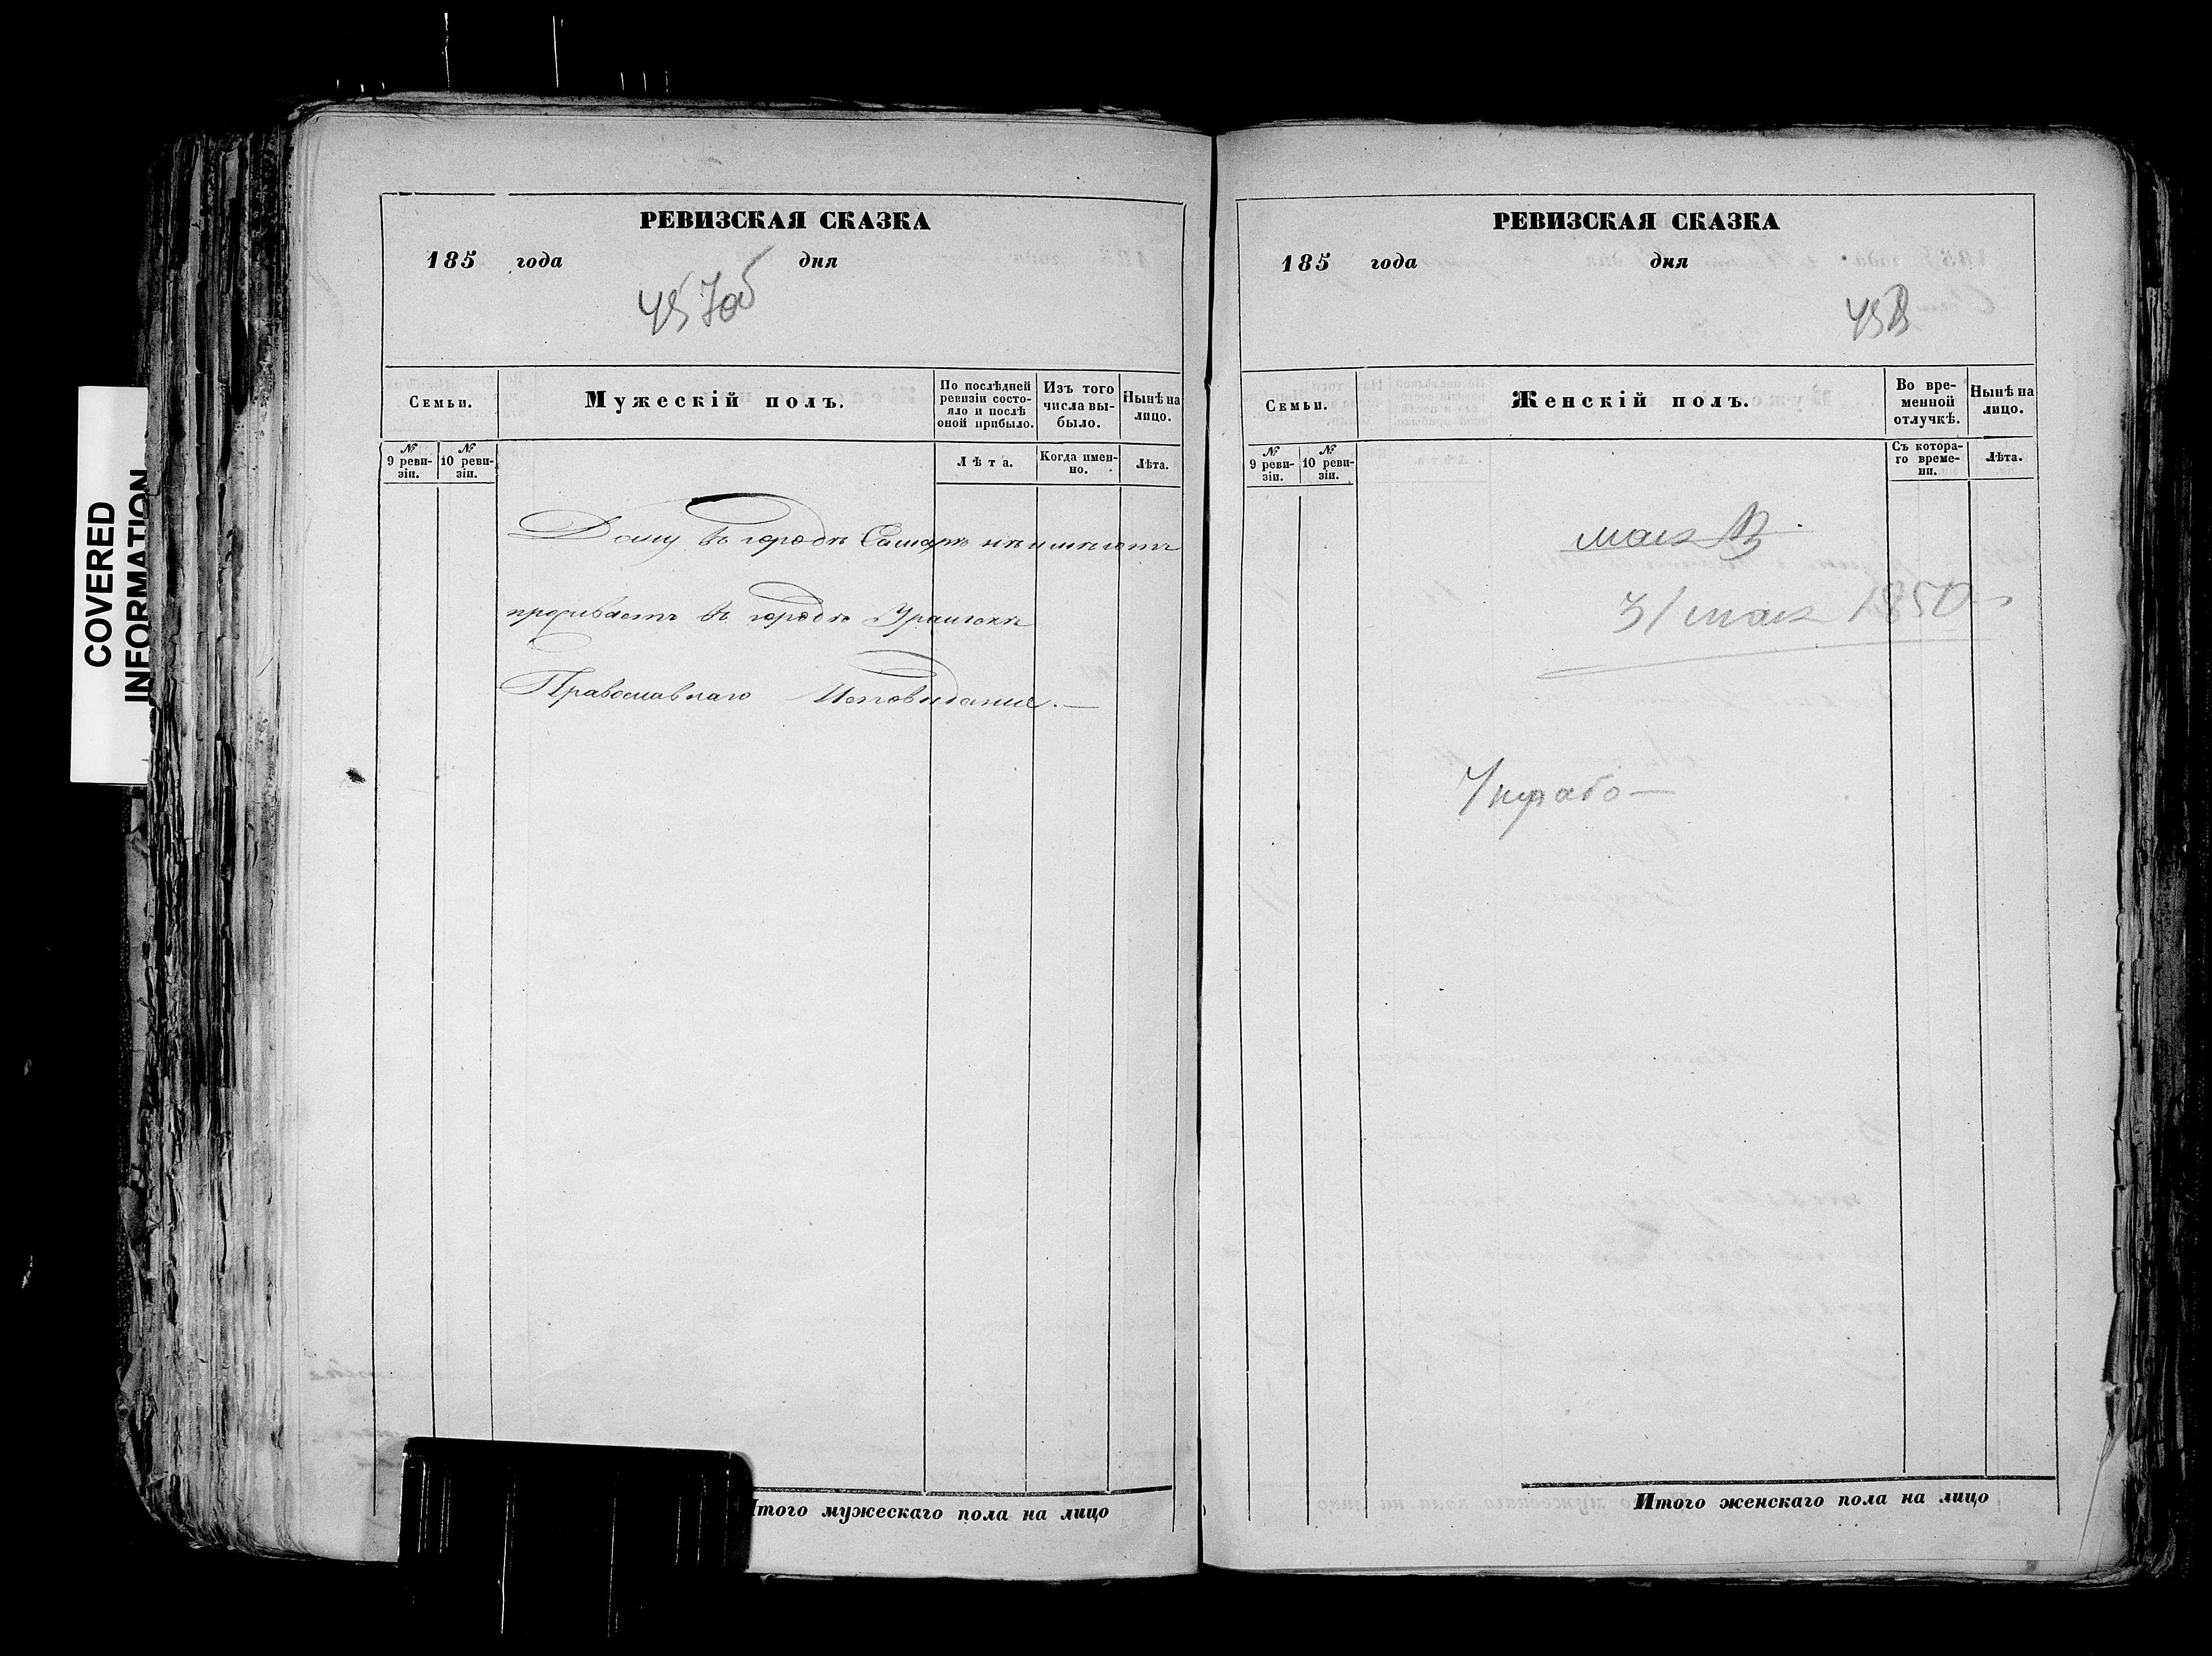 COVERED
INFORMATION
РЕВИЗСКАЯ СКАЗКА
185 года дня
45 Іоб
Семьи.
Мужескій полъ.
По послѣдней ревизіи состояло и послѣ оной прибыло.
Изъ того числа выбыло.
Нынѣ на лицо.
№ 9 ревизіи.
№ 10 ревизіи.
Лѣта.
Когда именно.
Лѣта.
Дому въ городѣ Самарѣ не имѣетъ
проживаетъ въ городѣ Уральскѣ
Православнаго Исповѣданія.—
Итого мужескаго пола на лицо
РЕВИЗСКАЯ СКАЗКА
185 года дня
45В
Семьи.
Женскій полъ.
Во временной отлучкѣ.
Нынѣ на лицо.
№ 9 ревизіи.
№ 10 ревизіи.
Съ котораго времени.
Лѣта.
мая
31 мая 1850
Итого женскаго пола на лицо